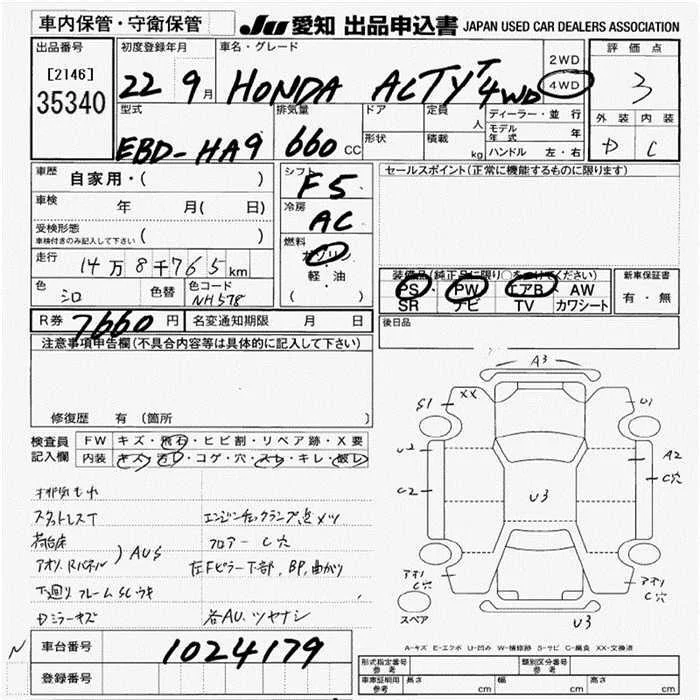 車内保管・守衛保管 JU 愛知 出品申込書 JAPAN USED CAR DEALERS ASSOCIATION
出品番号 初度登録年月 車名・グレード 2WD 評価点
[2146] 22 9月 HONDA ACTY T 4WD 4WD 3
35340
型式 排気量 ドア 定員 人 ディーラー・並行 外装 内装
モデル年式 年
EBD-HA9 660 cc 形状 積載 kg ハンドル 左・右 D C
車歴 自家用・( ) シフト F5 セールスポイント(正常に機能するものに限ります)
車検 年 月( 日) 冷房 AC
受検形態
車検付きのみ記入して下さい ( )
燃料 ガソリン
軽・油
( )
走行 14万8千765km
装備品(純正品に限り○をつけてください) 新車保証書
色 シロ 色替 色コード NH578
PS・PW エアB AW 有・無
SR ナビ TV カワシート
R券 7660円 名変通知期限 月 日 後日品
注意事項申告欄(不具合内容等は具体的に記入して下さい)
修復歴 有 (箇所
検査員 FW キズ・飛石・ヒビ割・リペア跡・X要
記入欄 内装 キズ・汚レ・コゲ・穴・スレ・キレ・破レ
A3
S1 XX U1
U2 A2
C穴
C2 U3
アオリ C穴 アオリ C穴
スペア U3
排気もれ
スタットレスT エンジンチェックランプ点メツ
荷台床 フロアー C穴
アオリ.Rパネル ) AUS 左Fピラー下部,BP,曲がり
下廻り フレームSCウキ
Dミラーキズ 各AU.ツヤナシ
A-キズ E-エクボ U-凹み W-補修跡 S-サビ C-腐食 XX-交換済
N 車台番号 1024179
登録番号
形式指定番号 参考 類別区分番号 参考
車庫証明用 参考 長さ cm 幅 cm 高さ cm